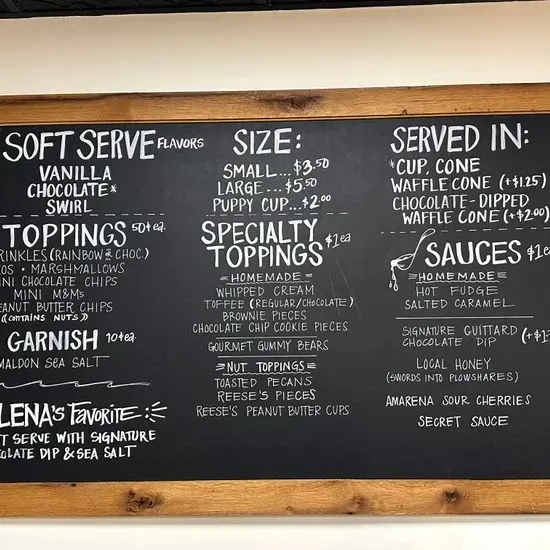 SOFT SERVE FLAVORS
VANILLA
CHOCOLATE*
SWIRL
TOPPINGS 50¢ ea.
RINKLES (RAINBOW OR CHOC.)
OS • MARSHMALLOWS
INI CHOCOLATE CHIPS
MINI M&Ms
EANUT BUTTER CHIPS
(CONTAINS NUTS)
GARNISH 10¢ ea.
MALDON SEA SALT
LENA'S FAVORITE
T SERVE WITH SIGNATURE
OLATE DIP & SEA SALT
SIZE:
SMALL... $3.50
LARGE... $5.50
PUPPY CUP... $2.00
SPECIALTY
TOPPINGS $1 ea
HOMEMADE
WHIPPED CREAM
TOFFEE (REGULAR/CHOCOLATE)
BROWNIE PIECES
CHOCOLATE CHIP COOKIE PIECES
GOURMET GUMMY BEARS
NUT TOPPINGS
TOASTED PECANS
REESE'S PIECES
REESE'S PEANUT BUTTER CUPS
SERVED IN:
*CUP, CONE
WAFFLE CONE (+$1.25)
CHOCOLATE-DIPPED
WAFFLE CONE (+$2.00)
SAUCES $1 ea
HOMEMADE
HOT FUDGE
SALTED CARAMEL
SIGNATURE GUITTARD
CHOCOLATE DIP
LOCAL HONEY
(SWORDS INTO PLOWSHARES)
AMARENA SOUR CHERRIES
SECRET SAUCE